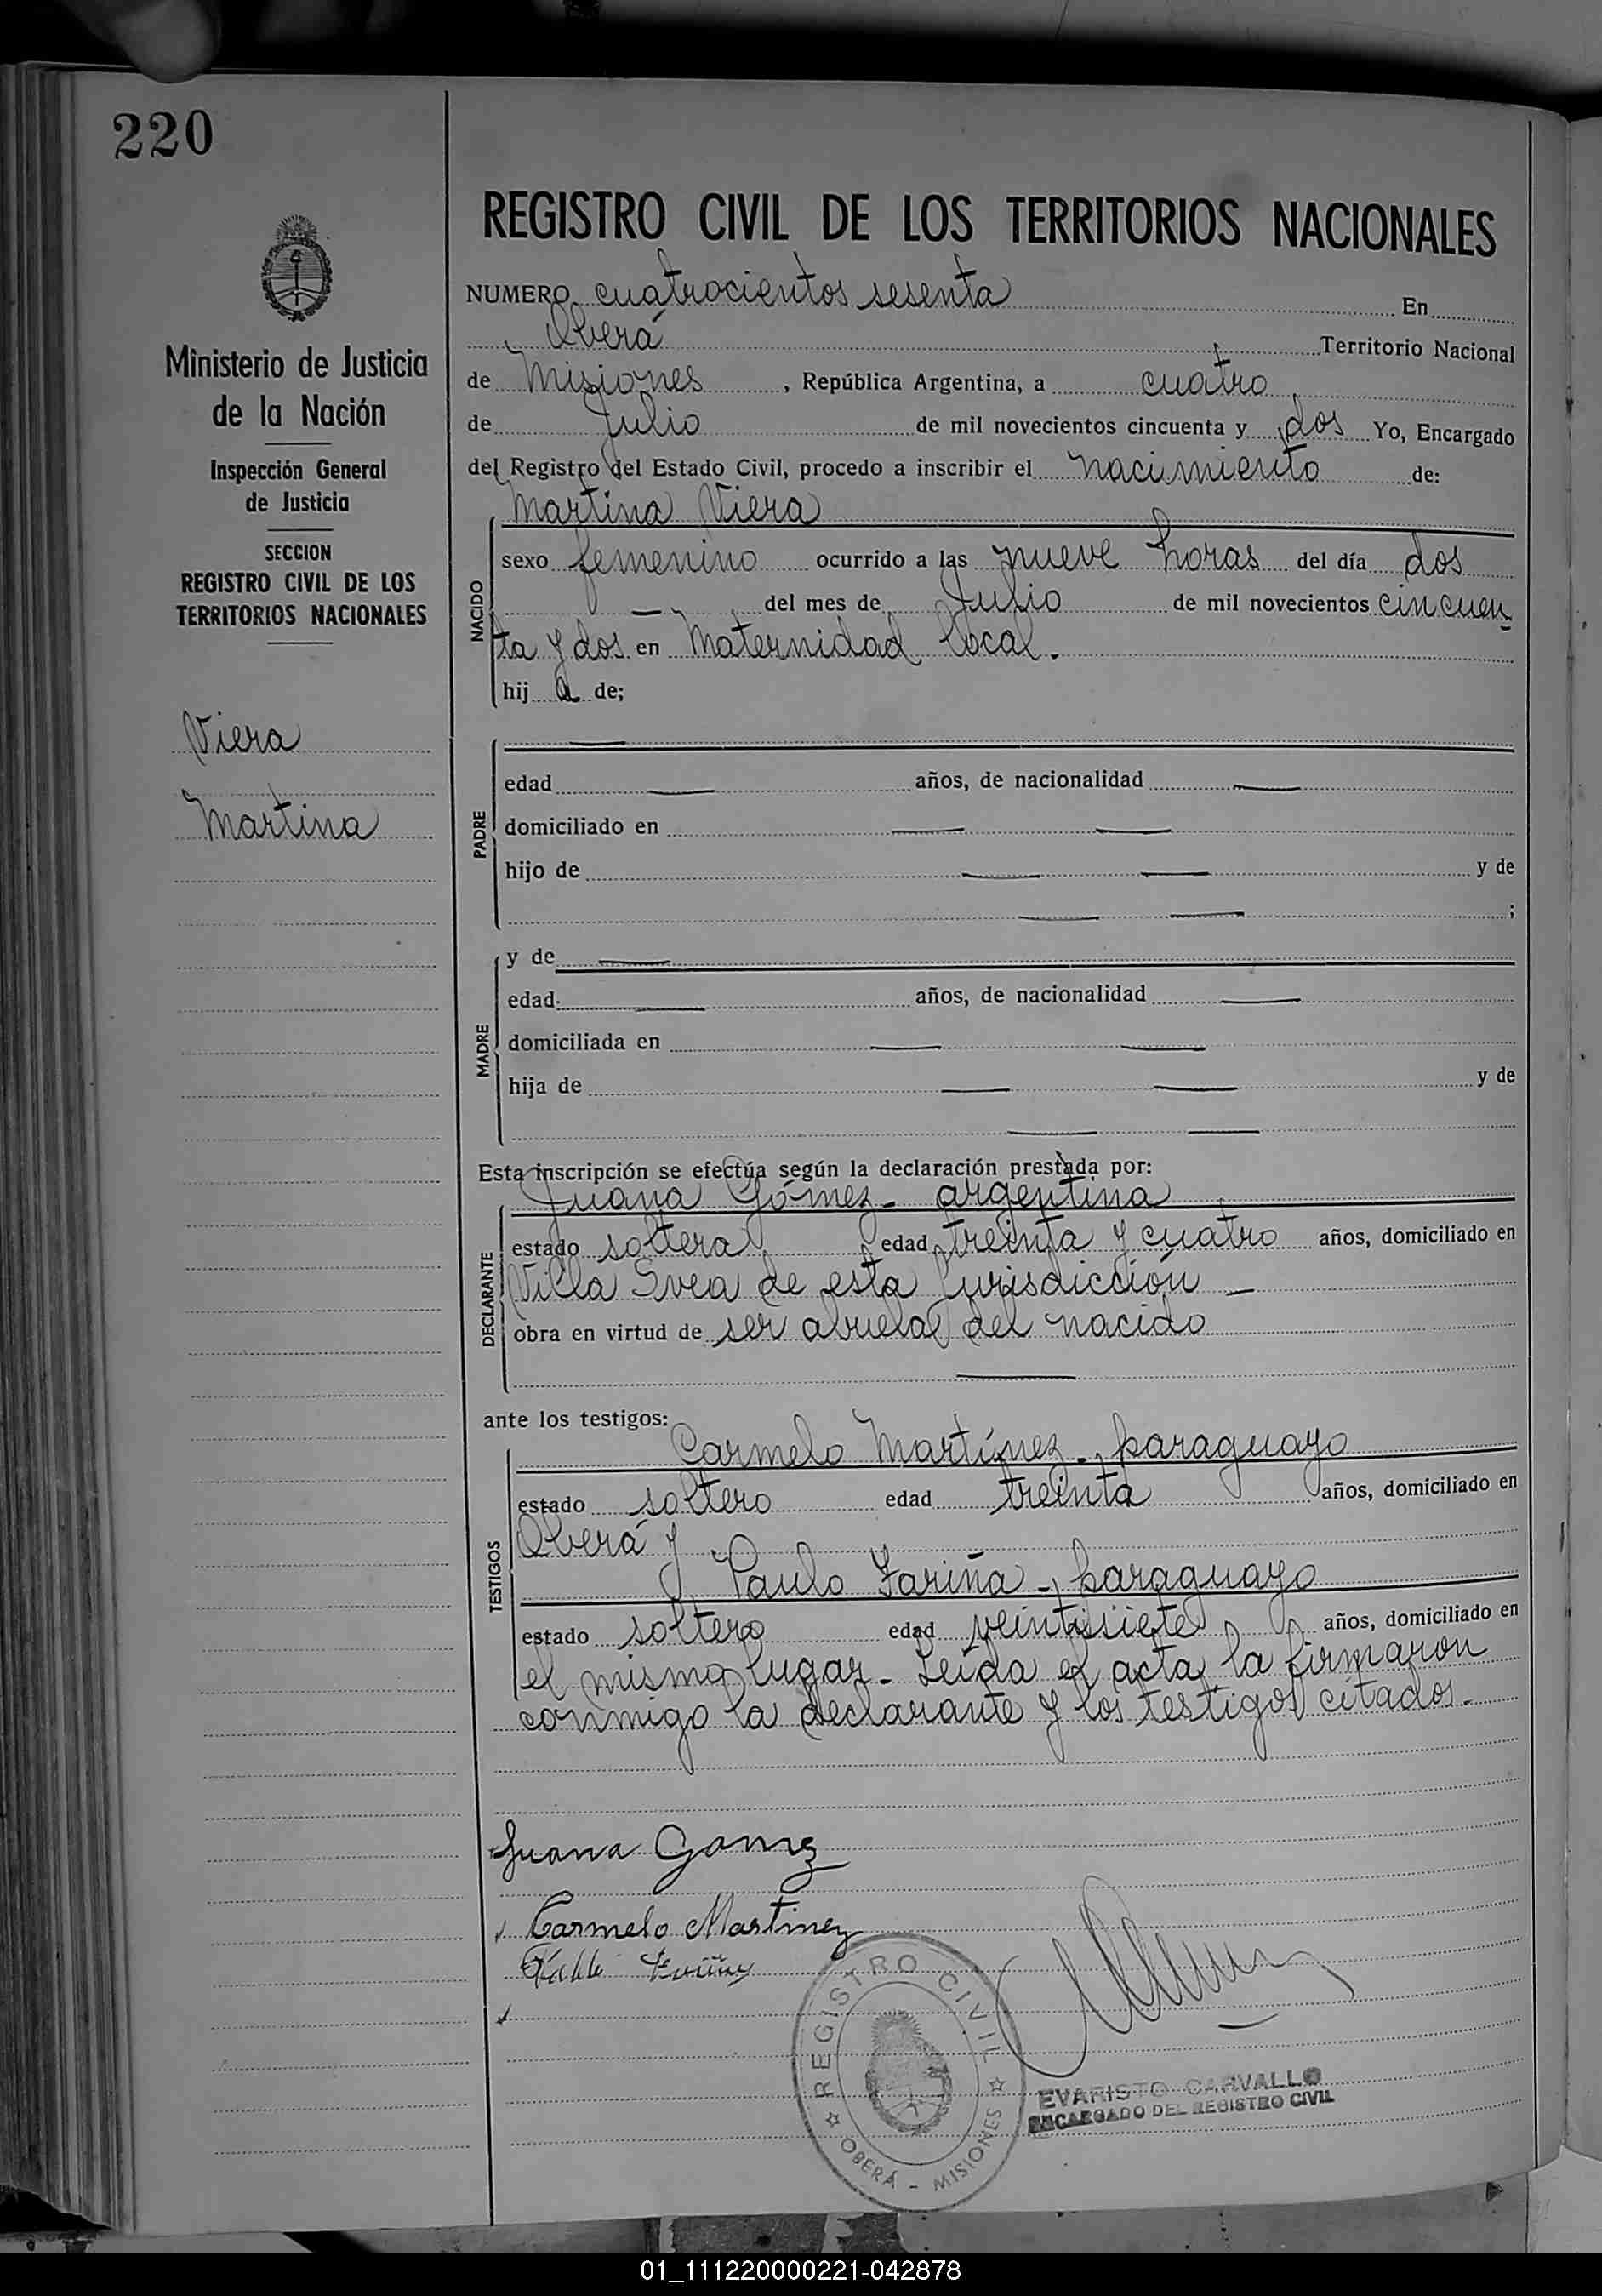 220
REGISTRO CIVIL DE LOS TERRITORIOS NACIONALES
Ministerio de Justicia
de la Nación
Inspección General
de Justicia
SECCION
REGISTRO CIVIL DE LOS
TERRITORIOS NACIONALES
Viera
Martina
NUMERO cuatrocientos sesenta En
Oberá Territorio Nacional
de Misiones, República Argentina, a cuatro
de Julio de mil novecientos cincuenta y dos Yo, Encargado
del Registro del Estado Civil, procedo a inscribir el nacimiento de:
NACIDO
Martina Viera
sexo femenino ocurrido a las nueve horas del día dos
— del mes de Julio de mil novecientos cincuen
ta y dos en Maternidad local.
hij a de;
PADRE
—
edad — años, de nacionalidad —
domiciliado en — —
hijo de — — y de
— — ;
MADRE
y de —
edad — años, de nacionalidad —
domiciliada en — —
hija de — — y de
— —
Esta inscripción se efectúa según la declaración prestada por:
DECLARANTE
Juana Gómez - argentina
estado soltera edad treinta y cuatro años, domiciliado en
Villa Svea de esta Jurisdicción —
obra en virtud de ser abuela del nacido
—
ante los testigos:
TESTIGOS
Carmelo Martínez - paraguayo
estado soltero edad treinta años, domiciliado en
Oberá y
Paulo Fariña - paraguayo
estado soltero edad veintisiete años, domiciliado en
el mismo lugar - Leída el acta la firmaron
conmigo la declarante y los testigos citados.-
Juana Gomez
Carmelo Martinez
REGISTRO CIVIL
OBERÁ - MISIONES
EVARISTO CARVALLO
ENCARGADO DEL REGISTRO CIVIL
01_111220000221-042878